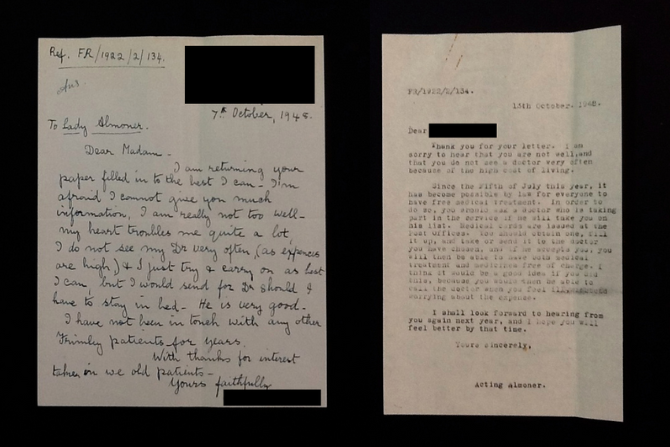 Ref. FR/1922/2/134.
7th October, 1948.
To Lady Almoner.
Dear Madam -
I am returning your
paper filled in to the best I can - I'm
afraid I cannot give you much
information, I am really not too well -
my heart troubles me quite a lot,
I do not see my Dr very often (as expences
are high) & I just try & carry on as best
I can, but I would send for Dr should I
have to stay in bed - He is very good -
I have not been in touch with any other
Frimley patients for years.
With thanks for interest
taken in we old patients -
Yours faithfully
FR/1922/2/134.
13th October. 1948.
Dear
Thank you for your letter. I am
sorry to hear that you are not well, and
that you do not see a doctor very often
because of the high cost of living.
Since the Fifth of July this year, it
has become possible by law for everyone to
have free medical treatment. In order to
do so, you should ask a doctor who is taking
part in the service if he will take you on
his list. Medical cards are issued at the
Post Offices. You should obtain one, fill
it up, and take or send it to the doctor
you have chosen, and if he accepts you, you
will then be able to have both medical
treatment and medicines free of charge. I
think it would be a good idea if you did
this, because you would then be able to
call the doctor when you feel without
worrying about the expense.
I shall look forward to hearing from
you again next year, and I hope you will
feel better by that time.
Yours sincerely,
Acting Almoner.